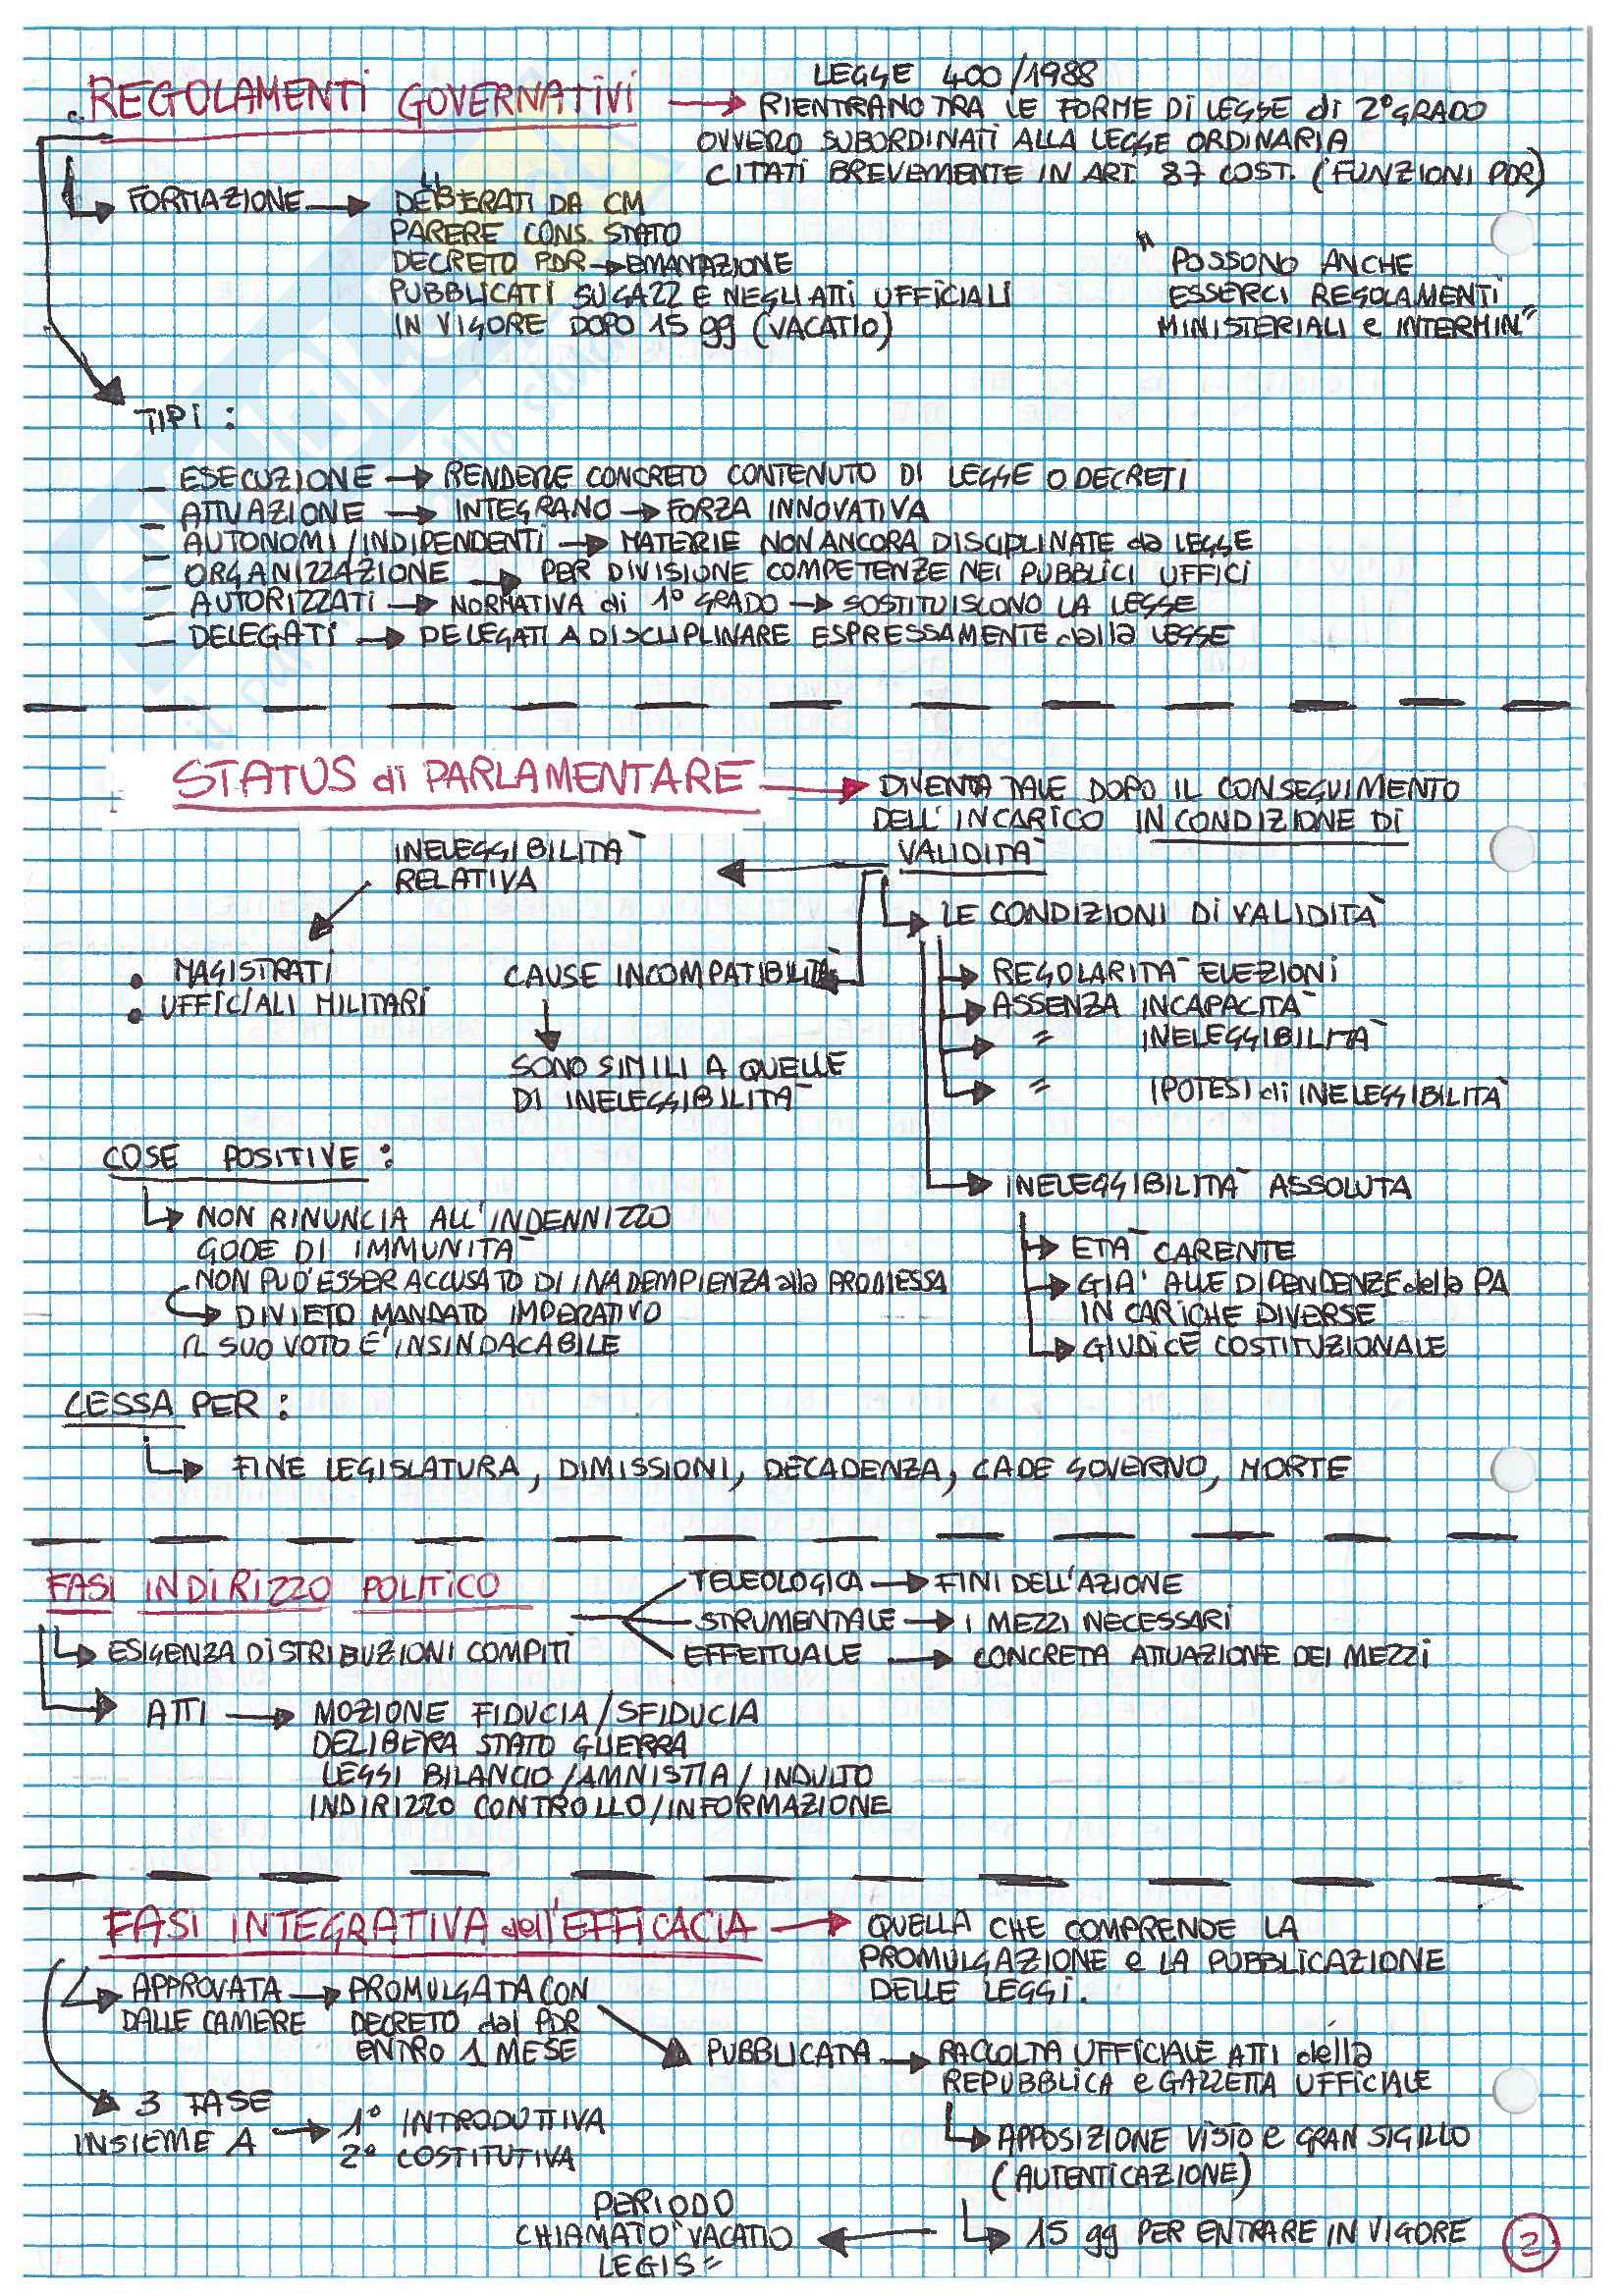 REGOLAMENTI GOVERNATIVI
LEGGE 400/1988
RIENTRANO TRA LE FORME DI LEGGE di 2° GRADO
OVVERO SUBORDINATI ALLA LEGGE ORDINARIA
CITATI BREVEMENTE IN ART. 87 COST. (FUNZIONI PDR)
FORMAZIONE → DELIBERATI DA CM
PARERE CONS. STATO
DECRETO PDR → EMANAZIONE
PUBBLICATI SU GAZZ E NEGLI ATTI UFFICIALI
IN VIGORE DOPO 15 gg (VACATIO)
" POSSONO ANCHE
ESSERCI REGOLAMENTI
MINISTERIALI e INTERMIN"
TIPI :
— ESECUZIONE → RENDERE CONCRETO CONTENUTO DI LEGGE O DECRETI
— ATTUAZIONE → INTEGRANO → FORZA INNOVATIVA
— AUTONOMI/INDIPENDENTI → MATERIE NON ANCORA DISCIPLINATE da LEGGE
— ORGANIZZAZIONE → PER DIVISIONE COMPETENZE NEI PUBBLICI UFFICI
— AUTORIZZATI → NORMATIVA di 1° GRADO → SOSTITUISCONO LA LEGGE
— DELEGATI → DELEGATI A DISCLIPLINARE ESPRESSAMENTE dalla LEGGE
STATUS di PARLAMENTARE → DIVENTA TALE DOPO IL CONSEGUIMENTO
DELL'INCARICO IN CONDIZIONE DI
VALIDITA'
INELEGGIBILITA'
RELATIVA
• MAGISTRATI
• UFFICIALI MILITARI
CAUSE INCOMPATIBILITA'
SONO SIMILI A QUELLE
DI INELEGGIBILITA'
LE CONDIZIONI DI VALIDITA'
REGOLARITA' ELEZIONI
ASSENZA INCAPACITA'
" INELEGGIBILITA'
" IPOTESI di INELEGGIBILITA'
INELEGGIBILITA' ASSOLUTA
ETA' CARENTE
GIA' ALLE DIPENDENZE della PA
IN CARICHE DIVERSE
GIUDICE COSTITUZIONALE
COSE POSITIVE :
NON RINUNCIA ALL'INDENNIZZO
GODE DI IMMUNITA'
NON PUO' ESSER ACCUSATO DI INADEMPIENZA alla PROMESSA
DIVIETO MANDATO IMPERATIVO
IL SUO VOTO E' INSINDACABILE
CESSA PER :
FINE LEGISLATURA, DIMISSIONI, DECADENZA, CADE GOVERNO, MORTE
FASI INDIRIZZO POLITICO
TELEOLOGICA → FINI DELL'AZIONE
STRUMENTALE → I MEZZI NECESSARI
EFFETTUALE → CONCRETA ATTUAZIONE DEI MEZZI
ESIGENZA DISTRIBUZIONI COMPITI
ATTI → MOZIONE FIDUCIA/SFIDUCIA
DELIBERA STATO GUERRA
LEGGI BILANCIO/AMNISTIA/INDULTO
INDIRIZZO CONTROLLO/INFORMAZIONE
FASI INTEGRATIVA dell'EFFICACIA → QUELLA CHE COMPRENDE LA
PROMULGAZIONE e LA PUBBLICAZIONE
DELLE LEGGI.
APPROVATA → PROMULGATA CON
DALLE CAMERE DECRETO dal PDR
ENTRO 1 MESE
PUBBLICATA → RACCOLTA UFFICIALE ATTI della
REPUBBLICA e GAZZETTA UFFICIALE
3 FASE
INSIEME A → 1° INTRODUTTIVA
2° COSTITUTIVA
APPOSIZIONE VISTO e GRAN SIGILLO
(AUTENTICAZIONE)
15 gg PER ENTRARE IN VIGORE
PERIODO
CHIAMATO "VACATIO
LEGIS"
2